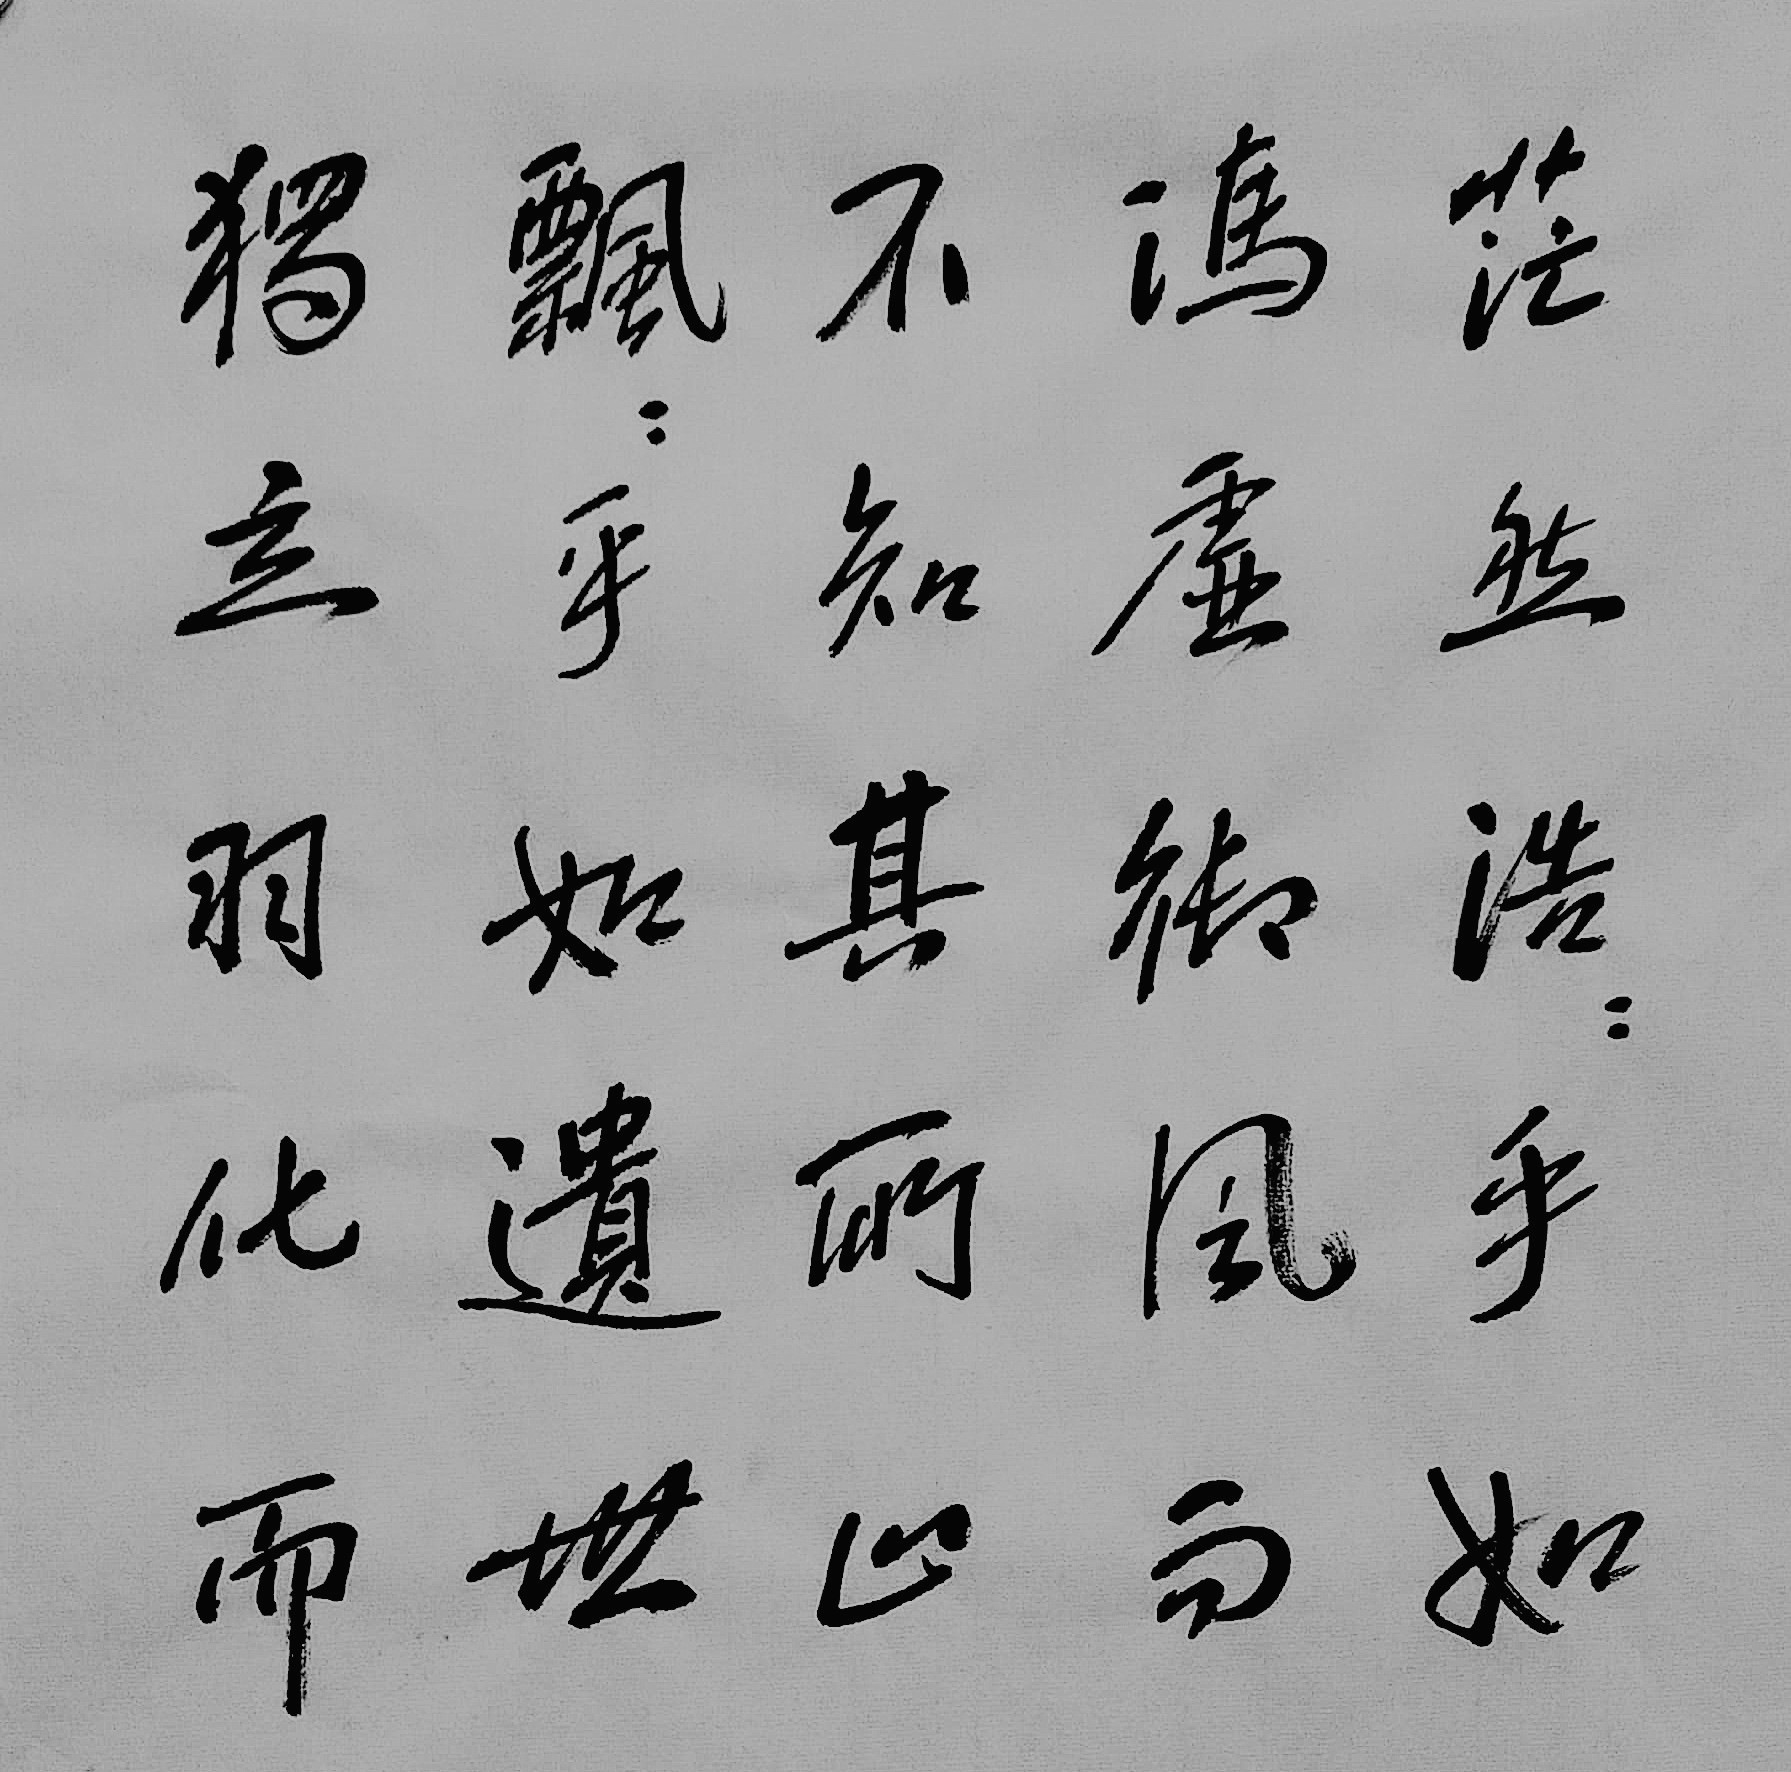 茫然浩〻乎如
馮虛御風而
不知其所止
飄〻乎如遺世
獨立羽化而